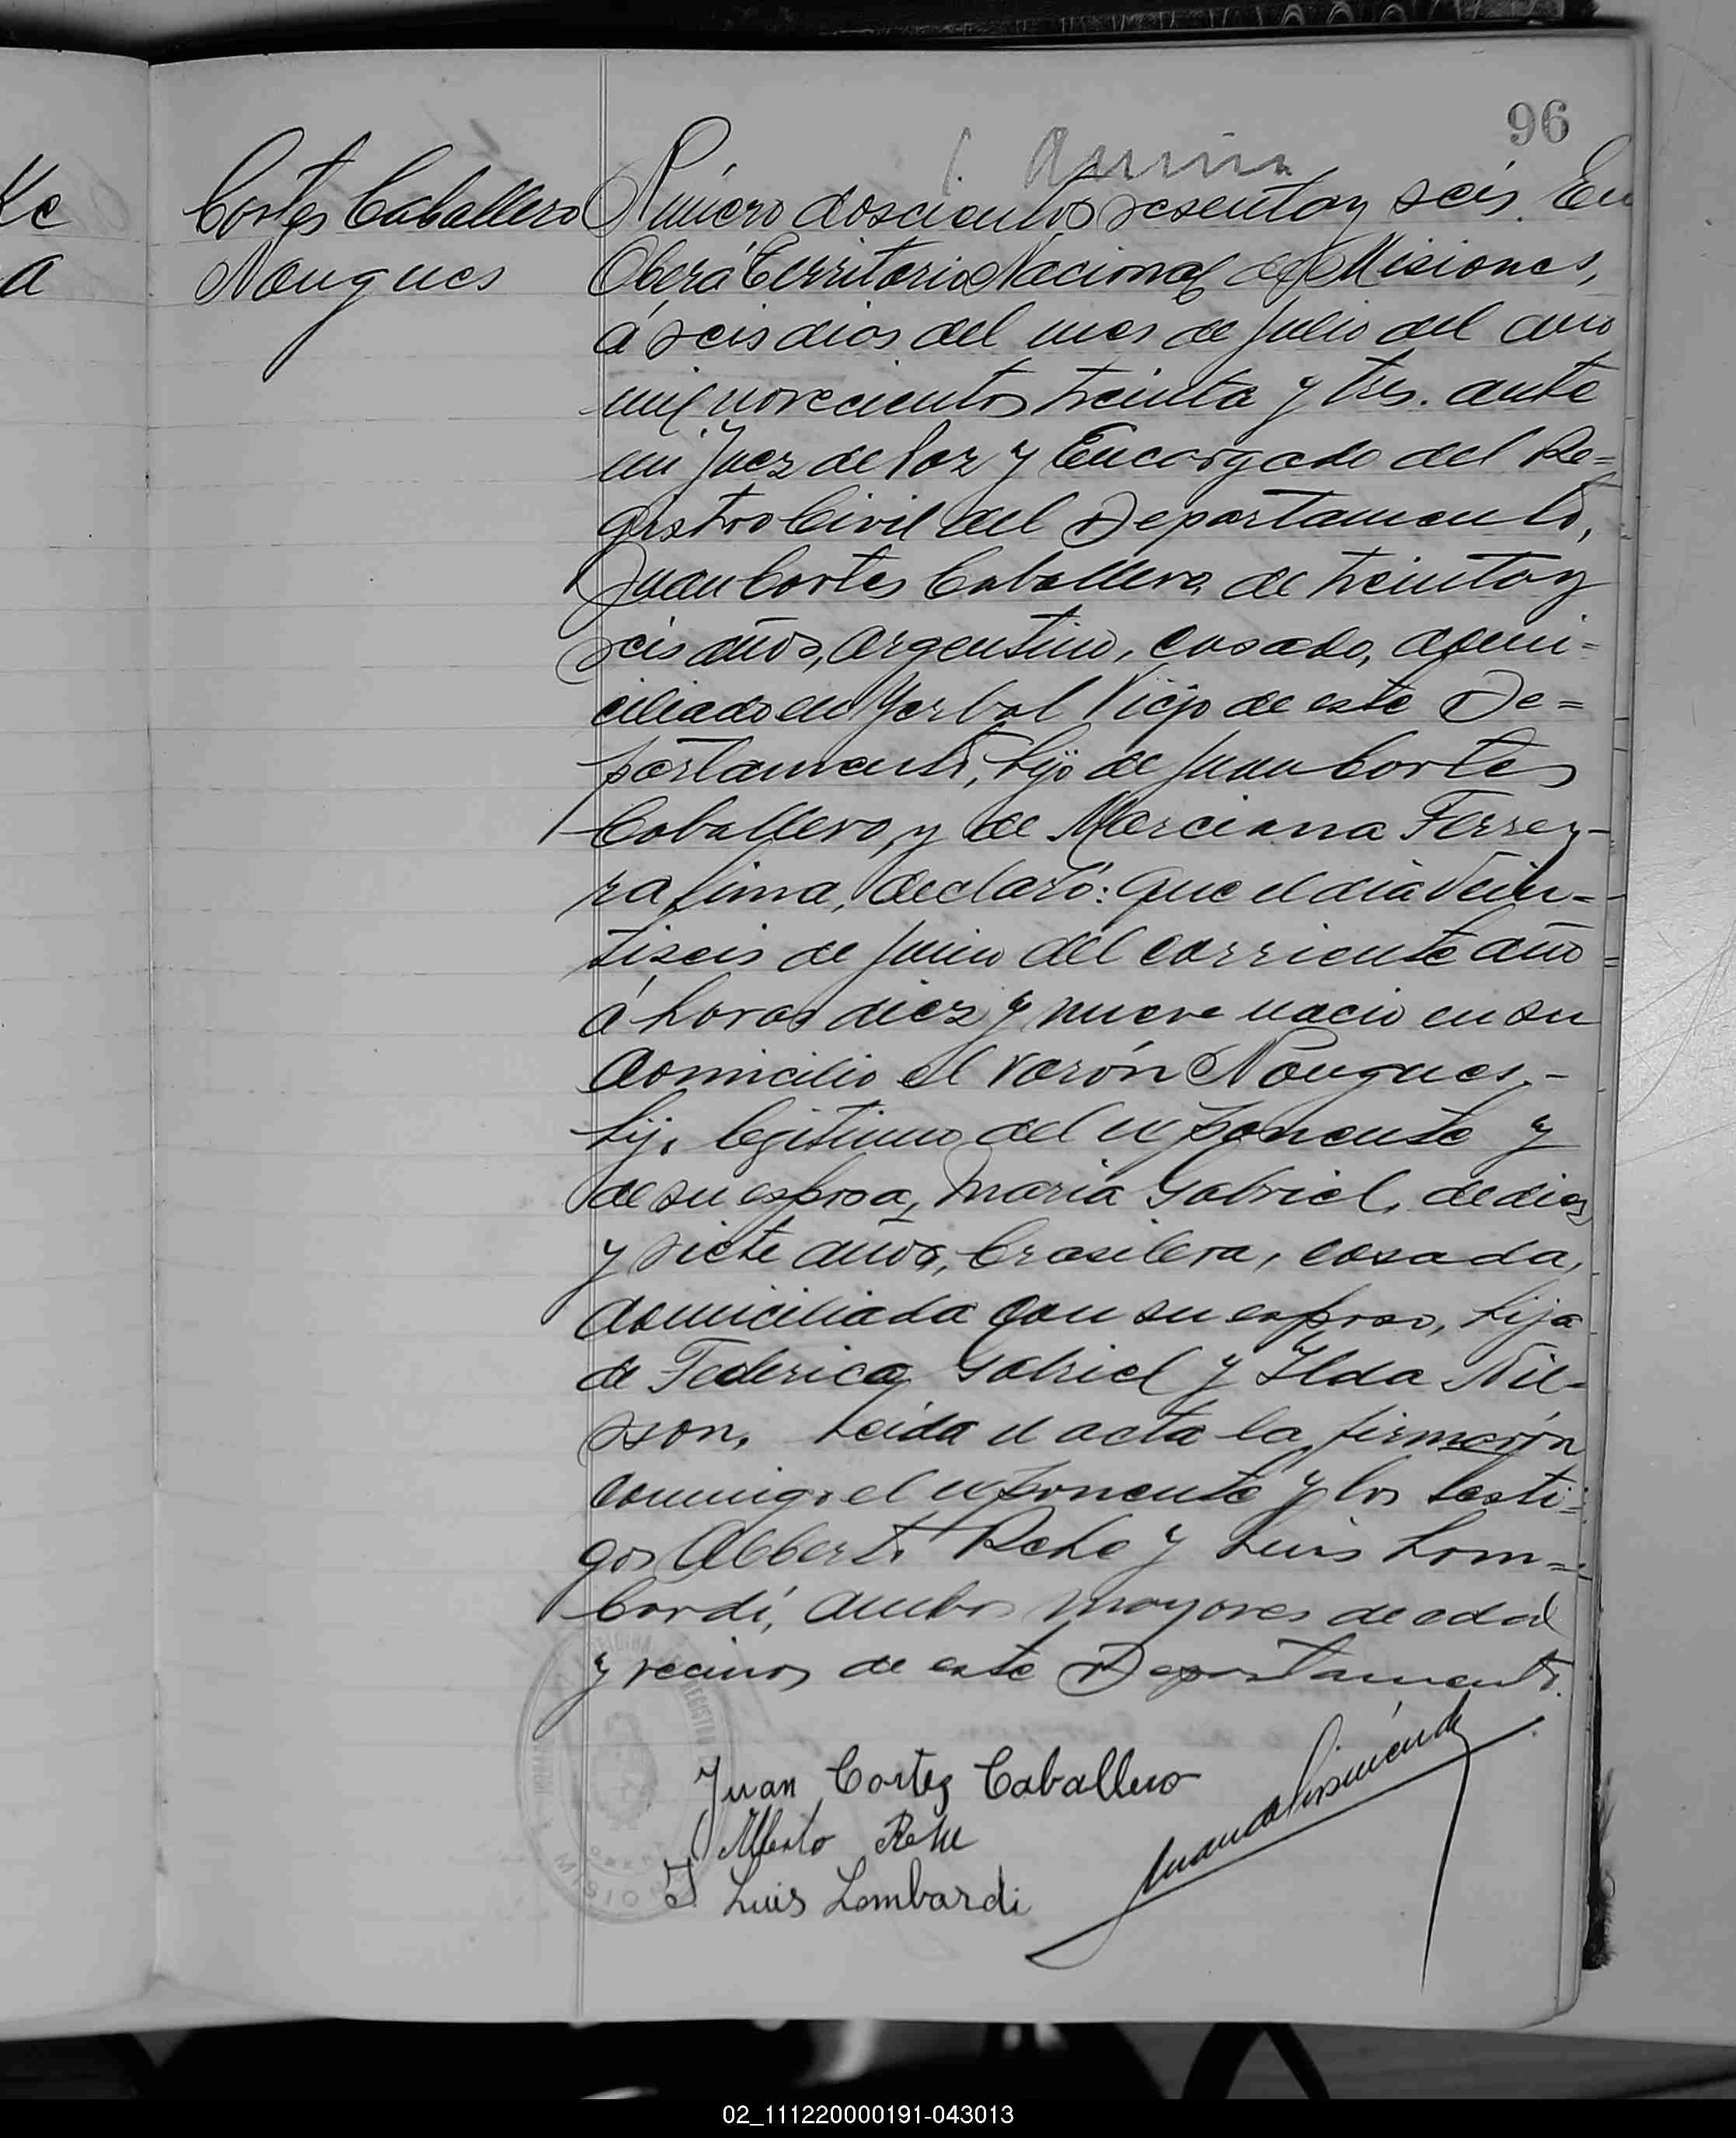 96
Cortes Caballero
Nougues
Número doscientos sesenta y seis. En
Oberá Territorio Nacional de Misiones,
á seis dias del mes de Julio del año
mil novecientos treinta y tres. ante
mi Juez de Paz y Encargado del Re=
gistro Civil del Departamento,
Juan Cortes Caballero, de treinta y
seis años, argentino, casado, domi=
ciliado en Yerbal Viejo de este De=
partamento, hijo de Juan Cortes
Caballero, y de Marciana Ferrey-
ra finna, declaró: Que el dia Vein=
tiseis de Junio del corriente año
á horas diez y nueve nacio en su
domicilio el varón Nougues,-
hijo legitimo del exponente y
de su esposa, Maria Gabriel, de diez
y siete años, brasilera, casada,
domiciliada con su esposo, hija
de Federico Gabriel y Ilda Nil=
sson. Leida el acta la firmarón
conmigo el exponente y los testi=
gos Alberto Rehe y Luis Lom=
bardi, ambos mayores de edad
y vecinos de este Departamento.
Juan Cortes Caballero
Alberto
Luis Lombardi
MISIO
Ke
a
02_111220000191-043013